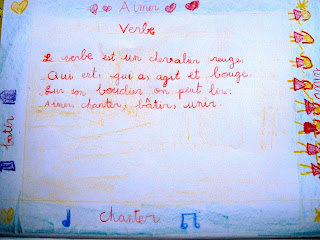 Aimer
Verbe
Le verbe est un chevalier rouge.
Qui est, qui a, agit et bouge.
Sur son bouclier on peut lire:
Aimer chanter, bâtir, unir.
Batir
unir
Chanter